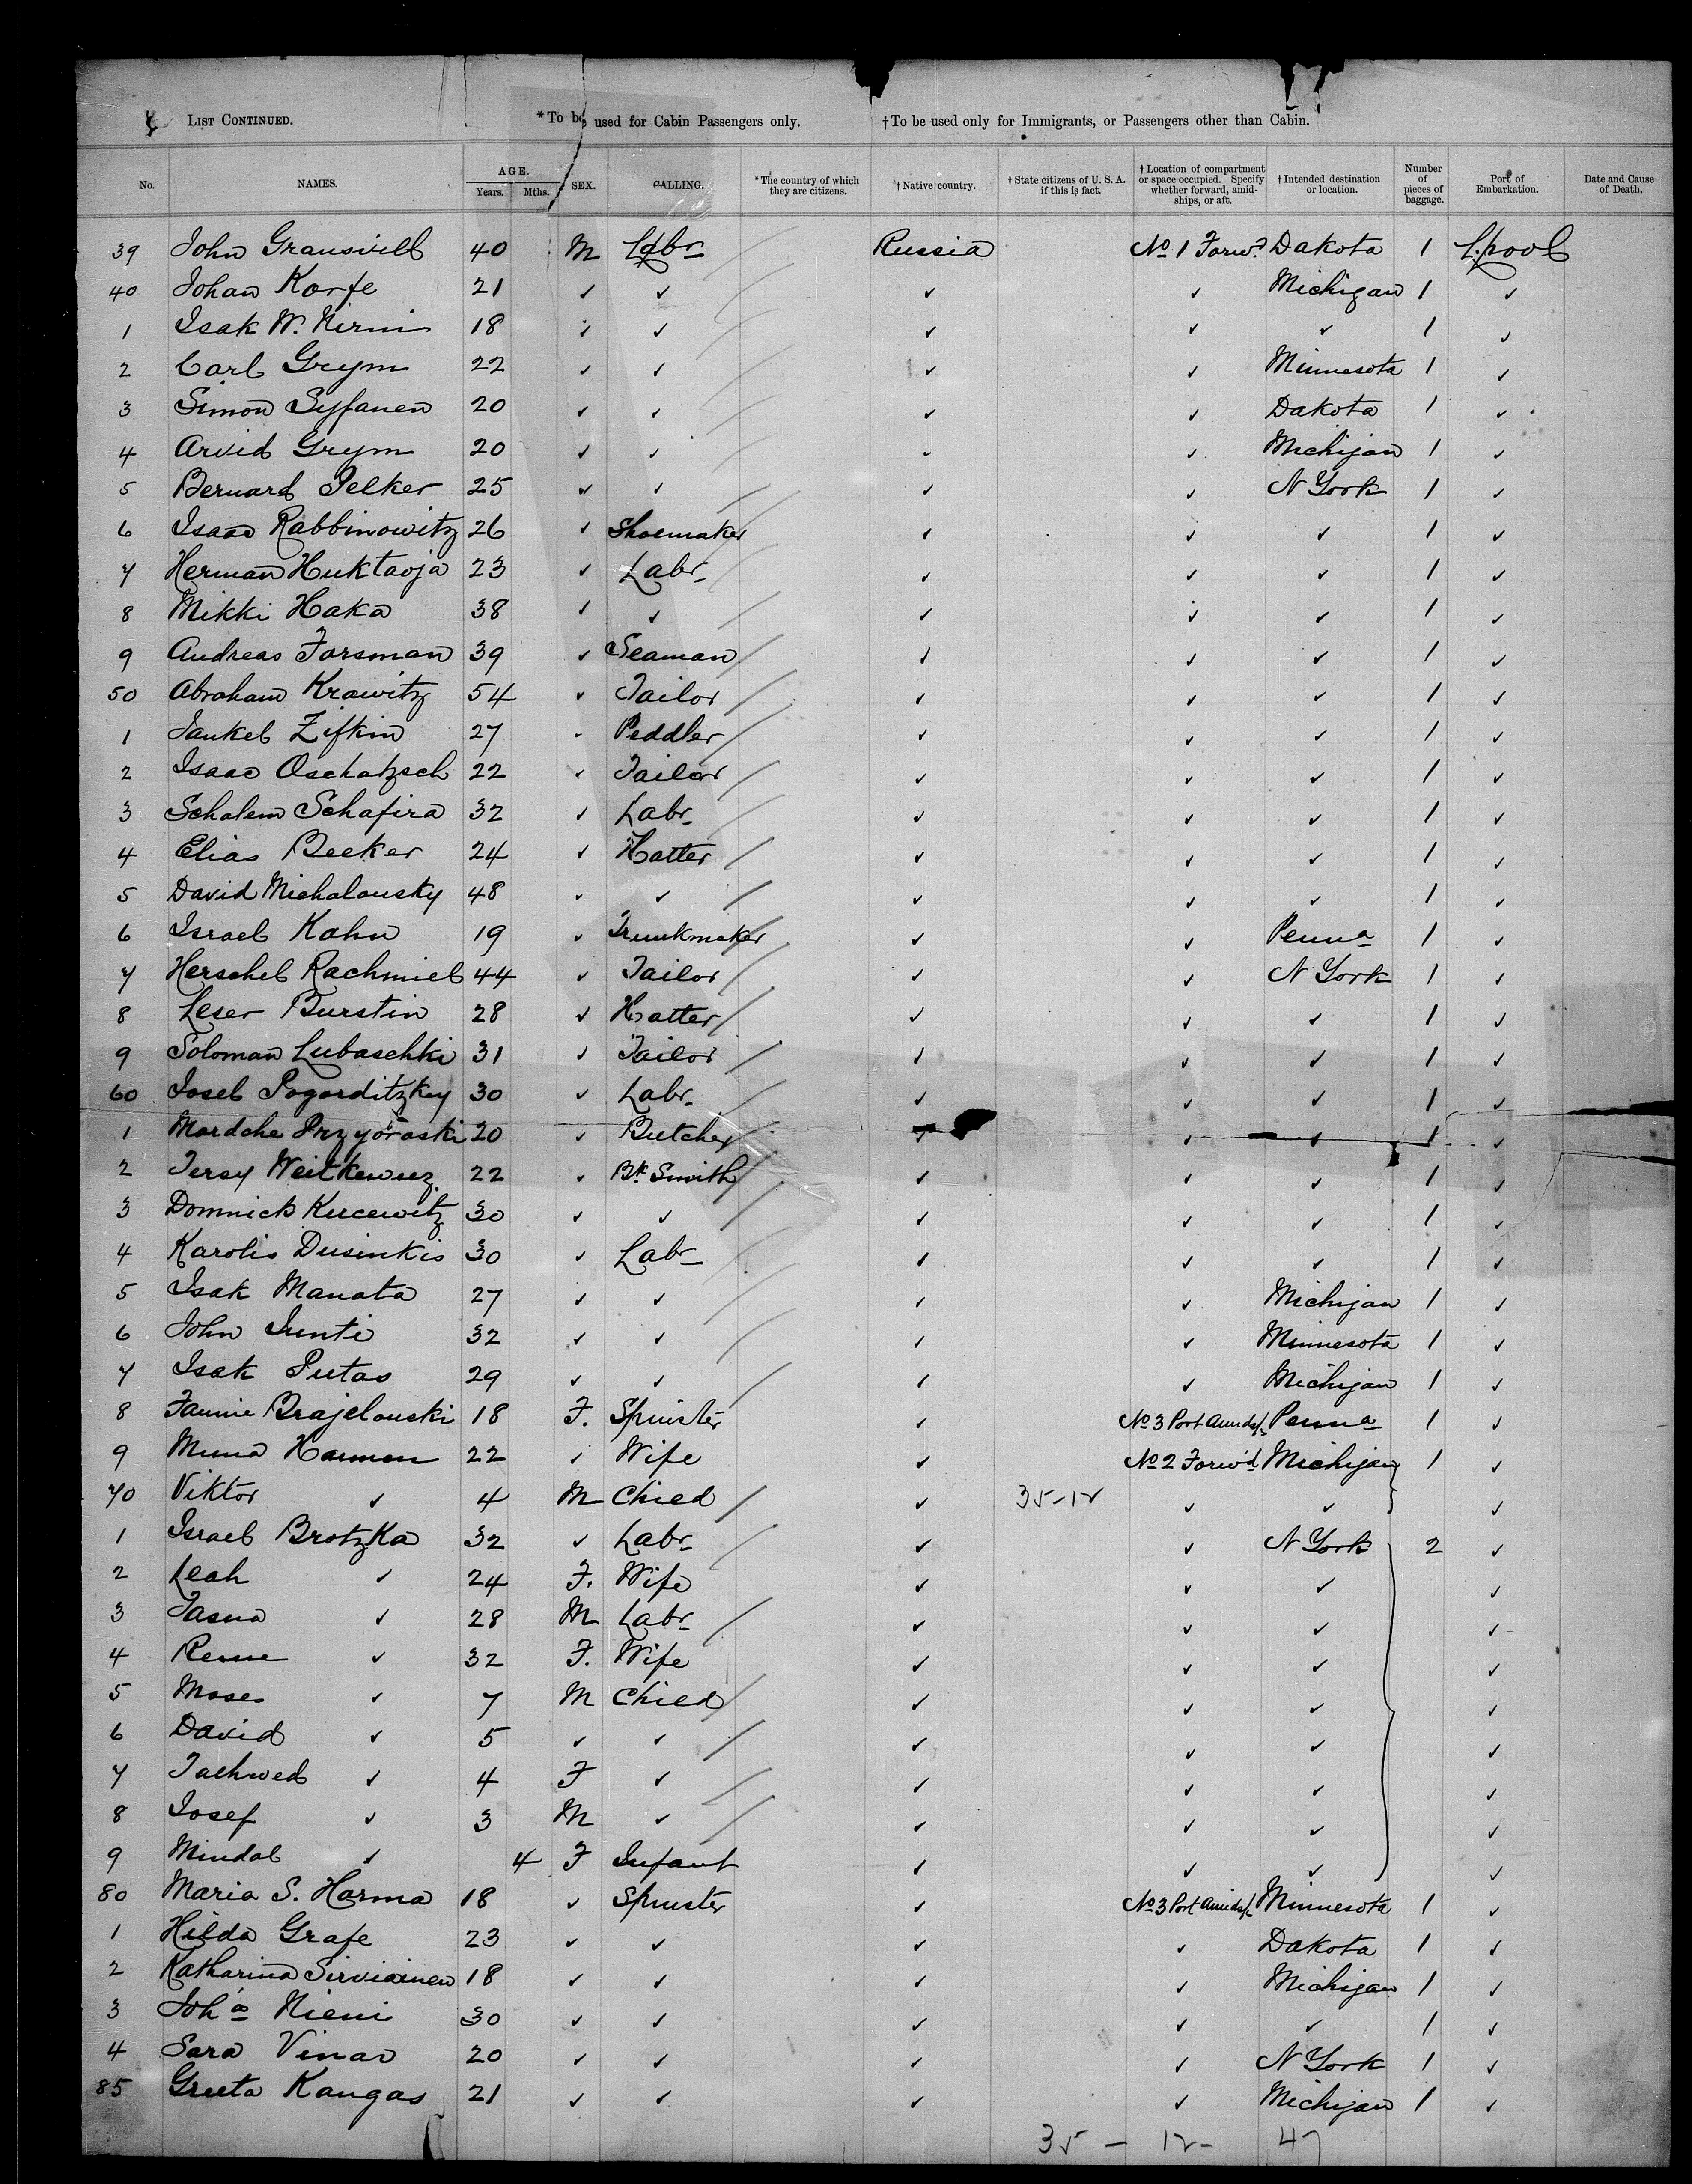 LIST CONTINUED. *To be used for Cabin Passengers only. †To be used only for Immigrants, or Passengers other than Cabin.
No. NAMES. AGE. Years. Mths. SEX. CALLING. *The country of which they are citizens. †Native country. †State citizens of U. S. A. if this is fact. †Location of compartment or space occupied. Specify whether forward, amidships, or aft. †Intended destination or location. Number of pieces of baggage. Port of Embarkation. Date and Cause of Death.
39 John 40 M Labr Russia No 1 Forwd Dakota 1 L.pool
40 Johan Korpe 21 ✓ ✓ ✓ ✓ Michigan 1 ✓
1 Isak W. Nirmi 18 ✓ ✓ ✓ ✓ ✓ 1 ✓
2 Carl Grym 22 ✓ ✓ ✓ ✓ Minnesota 1 ✓
3 Simon Syfanen 20 ✓ ✓ ✓ ✓ Dakota 1 ✓
4 Arvid Grym 20 ✓ ✓ ✓ ✓ Michigan 1 ✓
5 Bernard Pelker 25 ✓ ✓ ✓ ✓ N York 1 ✓
6 Isaac Rabbinowitz 26 ✓ Shoemaker ✓ ✓ ✓ 1 ✓
7 Herman Huktaoja 23 ✓ Labr ✓ ✓ ✓ 1 ✓
8 Mikki Haka 38 ✓ ✓ ✓ ✓ ✓ 1 ✓
9 Andreas Forsman 39 ✓ Seaman ✓ ✓ ✓ 1 ✓
50 Abraham Krawitz 54 ✓ Tailor ✓ ✓ ✓ 1 ✓
1 Jankel Zifkin 27 ✓ Peddler ✓ ✓ ✓ 1 ✓
2 Isaac Oschatzsch 22 ✓ Tailor ✓ ✓ ✓ 1 ✓
3 Scholem Schafira 32 ✓ Labr ✓ ✓ ✓ 1 ✓
4 Elias Becker 24 ✓ Hatter ✓ ✓ ✓ 1 ✓
5 David Michalousky 48 ✓ ✓ ✓ ✓ ✓ 1 ✓
6 Israel Kahn 19 ✓ Trunkmaker ✓ ✓ Penna 1 ✓
7 Herschel Rachmiel 44 ✓ Tailor ✓ ✓ N York 1 ✓
8 Leser Burstin 28 ✓ Hatter ✓ ✓ ✓ 1 ✓
9 Soloman Lubaschki 31 ✓ Tailor ✓ ✓ ✓ 1 ✓
60 Josel Pogorditzkey 30 ✓ Labr ✓ ✓ ✓ 1 ✓
1 Mordche 20 ✓ Butcher ✓ ✓ ✓ 1 ✓
2 Jersy 22 ✓ Bk Smith ✓ ✓ ✓ 1 ✓
3 Domnick Kucewitz 30 ✓ ✓ ✓ ✓ ✓ 1 ✓
4 Karolis Dusinkis 30 ✓ Labr ✓ ✓ ✓ 1 ✓
5 Isak Manata 27 ✓ ✓ ✓ ✓ Michigan 1 ✓
6 John Junti 32 ✓ ✓ ✓ ✓ Minnesota 1 ✓
7 Isak Putas 29 ✓ ✓ ✓ ✓ Michigan 1 ✓
8 Fannie Brajelouski 18 F. Spinster ✓ No 3 Port Amids/- Penna 1 ✓
9 Minna Harmon 22 ✓ Wife ✓ No 2 Forw'd Michigan 1 ✓
70 Viktor ✓ 4 M Child ✓ 35-12 ✓ ✓ ✓
1 Israel Brotzka 32 ✓ Labr ✓ ✓ N York 2 ✓
2 Leah ✓ 24 F. Wife ✓ ✓ ✓ ✓
3 Jasna ✓ 28 M Labr ✓ ✓ ✓ ✓
4 ✓ 32 F. Wife ✓ ✓ ✓ ✓
5 Moses ✓ 7 M Child ✓ ✓ ✓ ✓
6 David ✓ 5 ✓ ✓ ✓ ✓ ✓ ✓
7 Jachwed ✓ 4 F ✓ ✓ ✓ ✓ ✓
8 Josef ✓ 3 M ✓ ✓ ✓ ✓ ✓
9 Mindal ✓ 4 F Infant ✓ ✓ ✓ ✓
80 Maria S. Harma 18 ✓ Spinster ✓ No 3 Port Amids/- Minnesota 1 ✓
1 Hilda Grape 23 ✓ ✓ ✓ ✓ Dakota 1 ✓
2 Katharina Sirviainen 18 ✓ ✓ ✓ ✓ Michigan 1 ✓
3 Joh'a Niemi 30 ✓ ✓ ✓ ✓ ✓ 1 ✓
4 Sara Vinar 20 ✓ ✓ ✓ ✓ N York 1 ✓
85 Greeta Kangas 21 ✓ ✓ ✓ ✓ Michigan 1 ✓
35 - 12 - 47